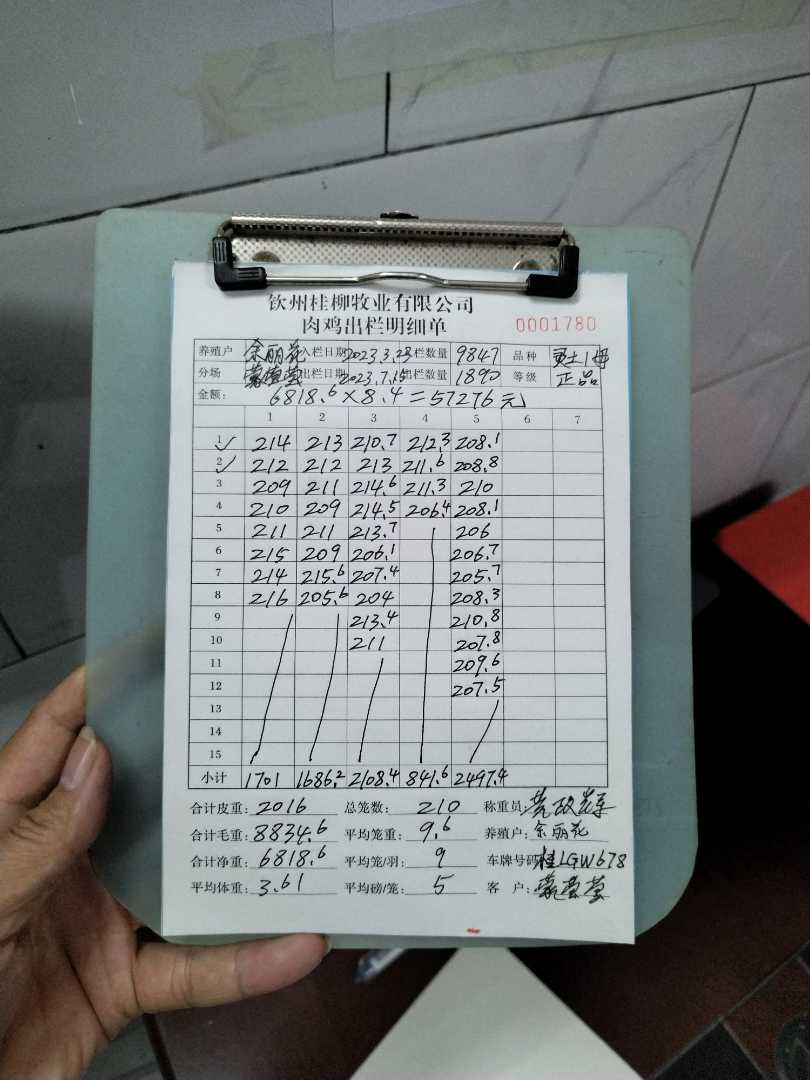 钦州桂柳牧业有限公司
肉鸡出栏明细单 0001780
养殖户 余丽花 入栏日期 2023.3.23 栏数量 9847 品种
分场 出栏日期 2023.7.15 出栏数量 1890 等级 正品
金额: 6818.6×8.4=57276元
1 2 3 4 5 6 7
1 214 213 210.7 212.3 208.1
2 212 212 213 211.6 208.8
3 209 211 214.6 211.3 210
4 210 209 214.5 206.4 208.1
5 211 211 213.7 206
6 215 209 206.1 206.7
7 214 215.6 207.4 205.7
8 216 205.6 204 208.3
9 213.4 210.8
10 211 207.8
11 209.6
12 207.5
13
14
15
小计 1701 1686.2 2108.4 841.6 2497.4
合计皮重: 2016 总笼数: 210 称重员:
合计毛重: 8834.6 平均笼重: 9.6 养殖户: 余丽花
合计净重: 6818.6 平均笼/羽: 9 车牌号码 桂LGW678
平均体重: 3.61 平均磅/笼: 5 客 户: